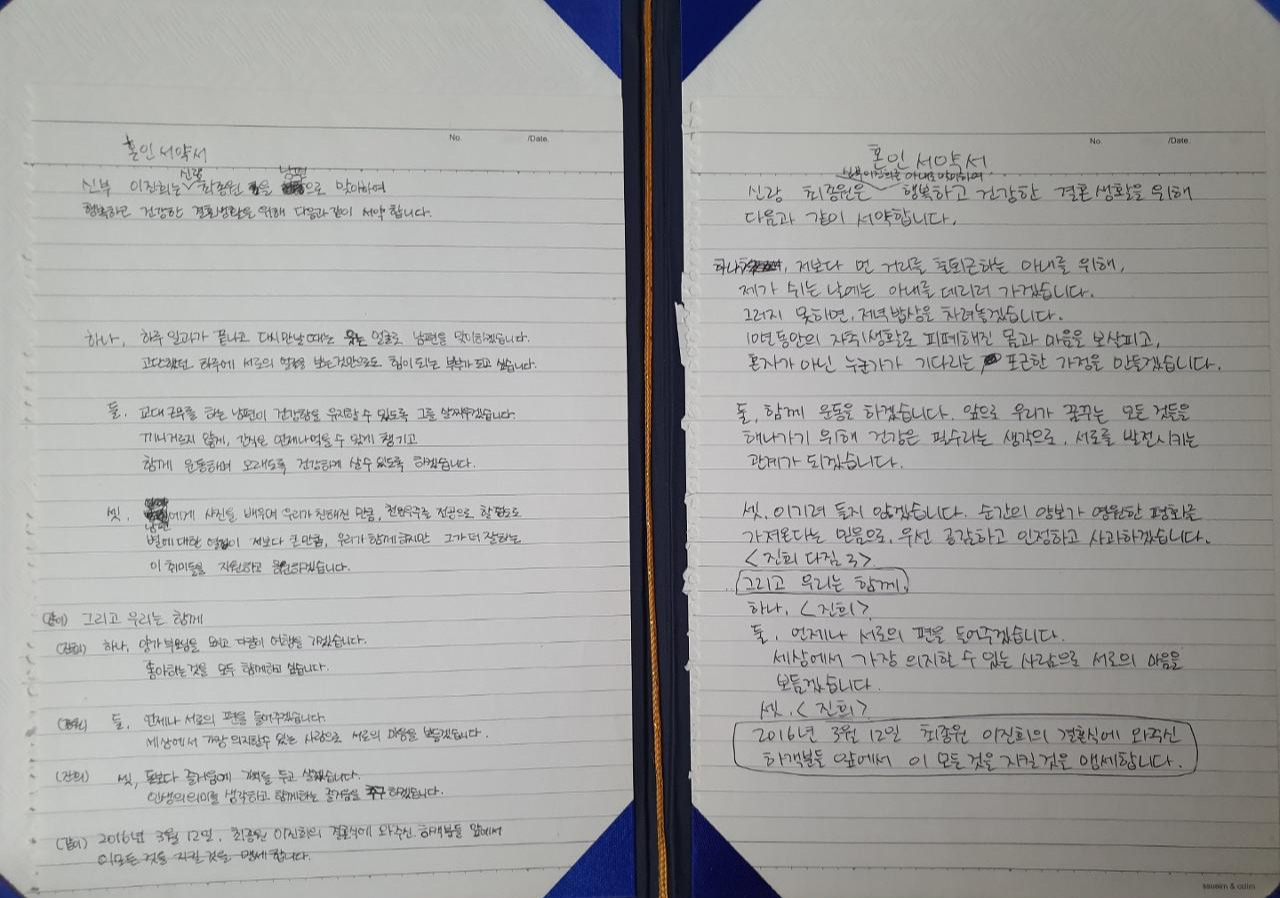 No. /Date.
혼인 서약서
신랑 남편
신부 이진희는 최종원을 으로 맞이하여
행복하고 건강한 결혼생활을 위해 다음과 같이 서약 합니다.
하나, 하루 일과가 끝나고 다시 만날 때는 웃는 얼굴로 남편을 맞이하겠습니다.
고단했던 하루에 서로의 얼굴을 보는 것만으로도 힘이 되는 부부가 되고 싶습니다.
둘, 교대 근무를 하는 남편이 건강함을 유지할 수 있도록 그를 살찌우겠습니다.
끼니거르지 않게, 간식은 언제나 먹을 수 있게 챙기고
함께 운동하며 오래도록 건강하게 살 수 있도록 하겠습니다.
셋, 에게 사진을 배우며 우리가 친해진 만큼, 천문우주를 전공으로 할 정도로
남편
별에 대한 열정이 저보다 큰 만큼, 우리가 함께 하지만 그가 더 잘하는
이 취미들을 지원하고 응원하겠습니다.
(같이) 그리고 우리는 함께
(진희) 하나, 양가 부모님을 모시고 다같이 여행을 가겠습니다.
좋아하는 것을 모두 함께하고 싶습니다.
둘, 언제나 서로의 편을 들어주겠습니다.
세상에서 가장 의지할 수 있는 사람으로 서로의 마음을 보듬겠습니다.
(진희) 셋, 돈보다 즐거움에 가치를 두고 살겠습니다.
인생의 의미를 생각하고 함께하는 즐거움을 추구하겠습니다.
(같이) 2016년 3월 12일, 최종원 이진희의 결혼식에 와주신 하객분들 앞에서
이 모든 것을 지킬 것을 맹세 합니다.
No. /Date.
혼인 서약서
신부 이진희를 아내로 맞이하여
신랑 최종원은 행복하고 건강한 결혼생활을 위해
다음과 같이 서약합니다.
하나, 저보다 먼 거리를 출퇴근하는 아내를 위해,
제가 쉬는 날에는 아내를 데리러 가겠습니다.
그러지 못하면, 저녁밥상을 차려놓겠습니다.
10년동안의 자취생활로 피폐해진 몸과 마음을 보살피고,
혼자가 아닌 누군가가 기다리는 포근한 가정을 만들겠습니다.
둘, 함께 운동을 하겠습니다. 앞으로 우리가 꿈꾸는 모든 것들을
해나가기 위해 건강은 필수라는 생각으로, 서로를 발전시키는
관계가 되겠습니다.
셋, 이기려 들지 않겠습니다. 순간의 양보가 영원한 평화를
가져온다는 믿음으로, 우선 공감하고 인정하고 사과하겠습니다.
<진희 다짐 3>
그리고 우리는 함께,
하나, <진희>
둘, 언제나 서로의 편을 들어주겠습니다.
세상에서 가장 의지할 수 있는 사람으로 서로의 마음을
보듬겠습니다.
셋, <진희>
2016년 3월 12일 최종원 이진희의 결혼식에 와주신
하객분들 앞에서 이 모든 것을 지킬것은 맹세합니다.